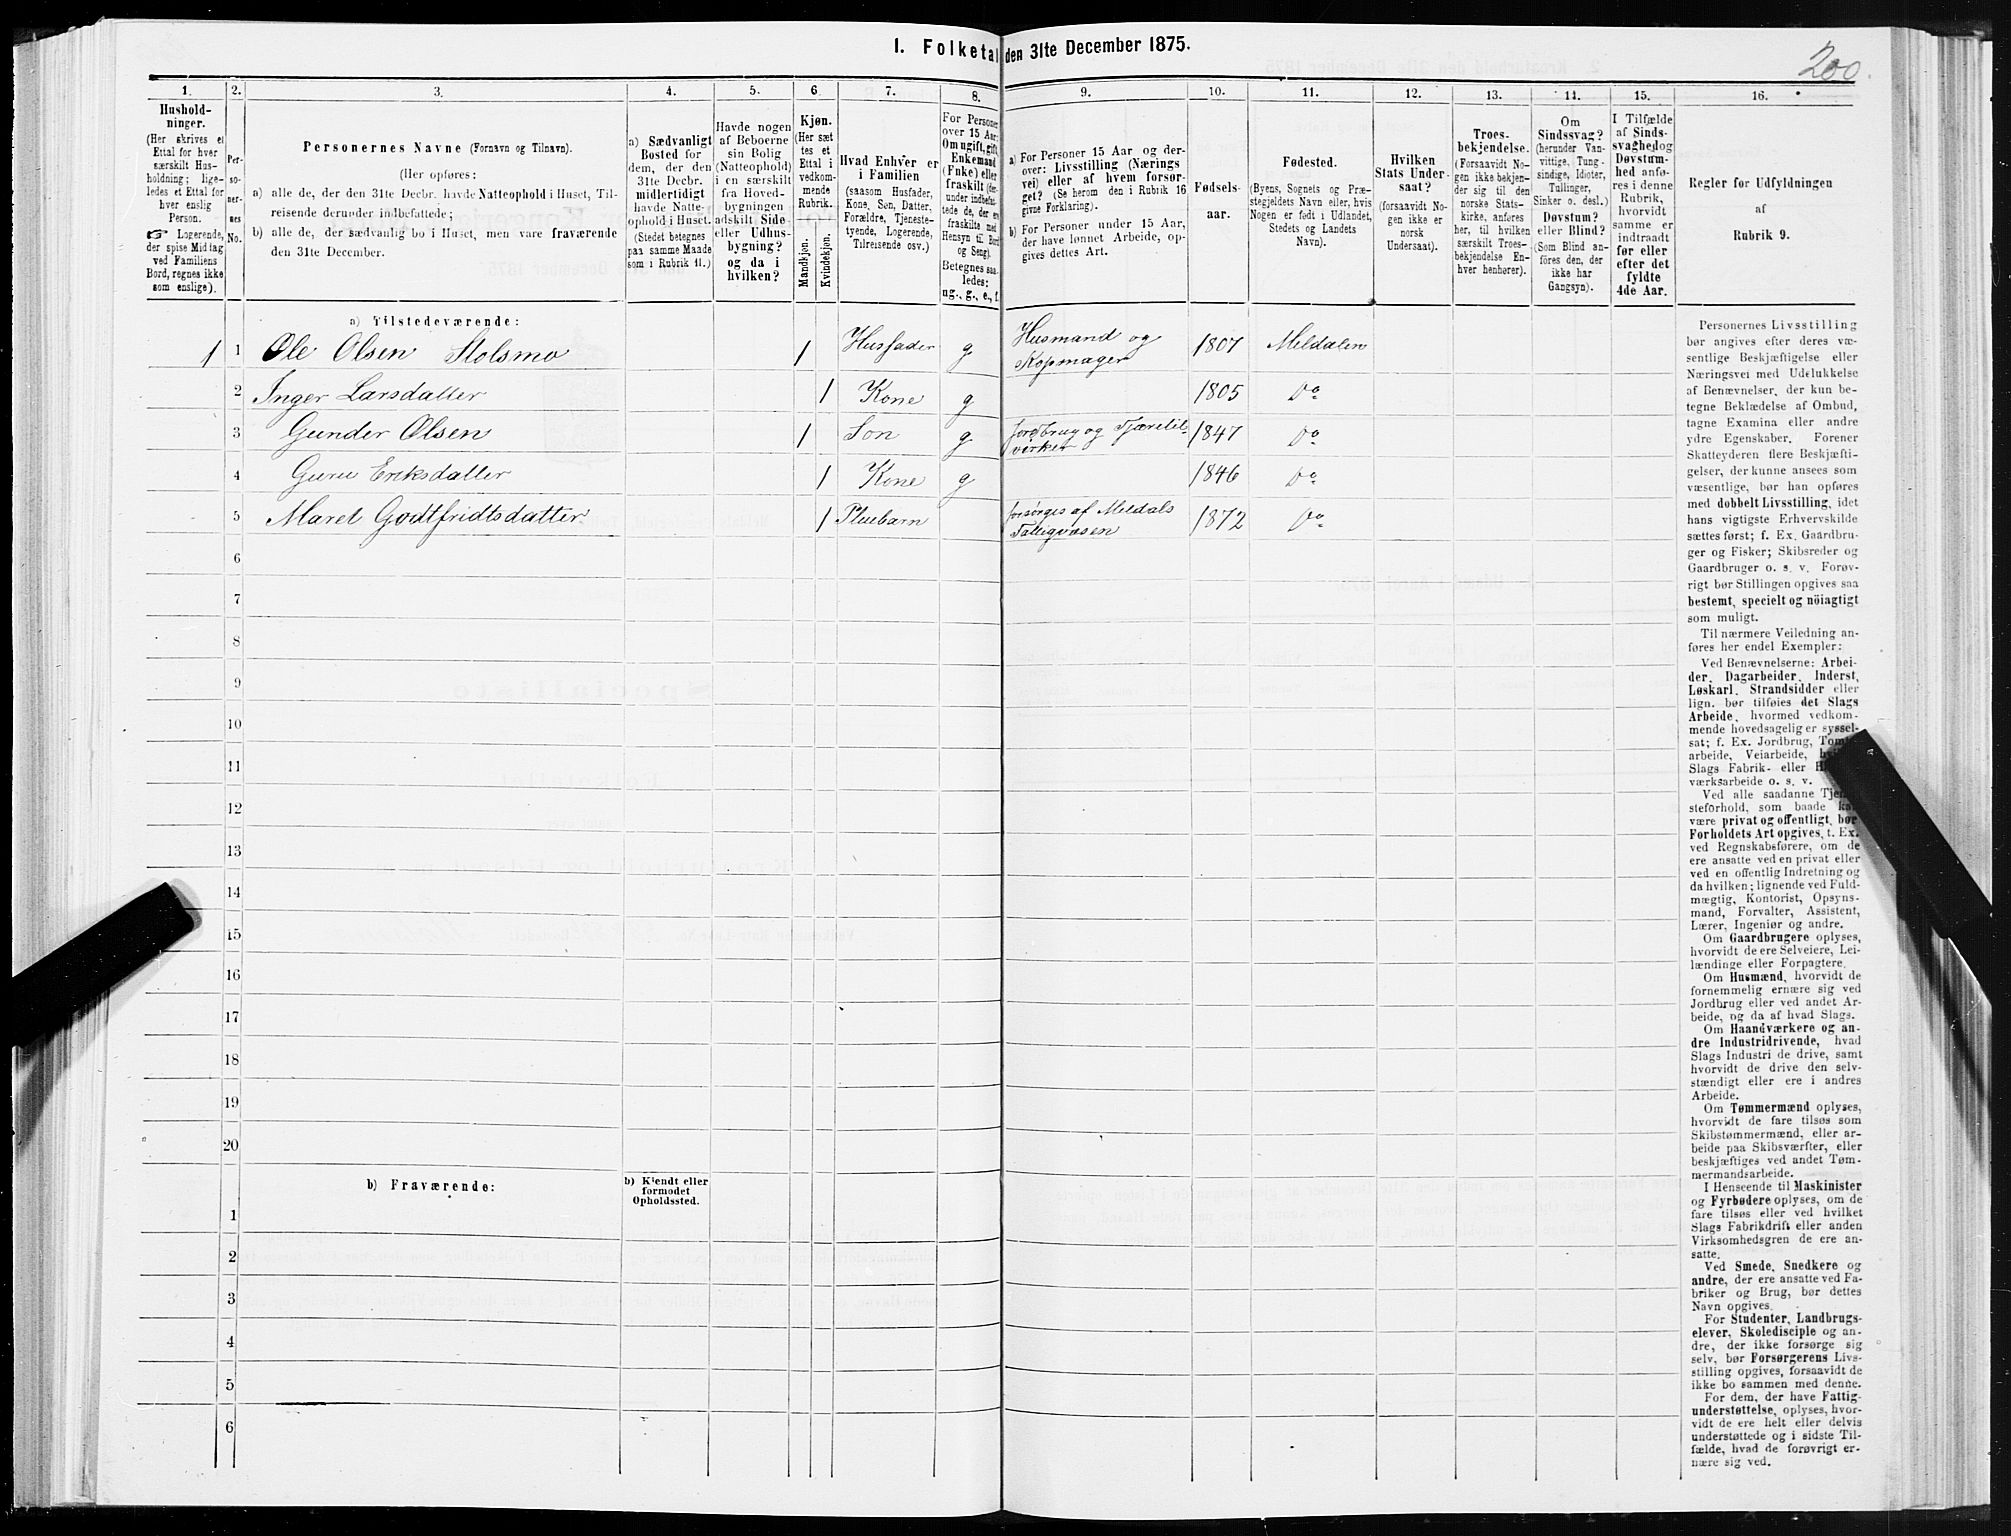 1. Folketal den 31te December 1875.
200.
1.
2.
3.
4.
5.
6.
7.
8.
9.
10.
11.
12.
13.
14.
15.
16.
Hushold-
ninger.
(Her skrives et
Ettal for hver
særskilt Hus-
holdning; lige-
ledes et Ettal for
hver enslig
Person.
☞ Logerende,
der spise Middag
ved Familiens
Bord, regnes ikke
som enslige).
Per-
so-
ner-
nes
No.
Personernes Navne (Fornavn og Tilnavn).
(Her opføres:
a) alle de, der den 31te Decbr. havde Natteophold i Huset, Til-
reisende derunder indbefattede;
b) alle de, der sædvanlig bo i Huset, men vare fraværende
den 31te December.
a) Sædvanligt
Bosted for
dem, der den
31te Decbr.
midlertidigt
havde Natte-
ophold i Huset.
(Stedet betegnes
paa samme Maade
som i Rubrik 11.)
Havde nogen
af Beboerne
sin Bolig
(Natteophold)
i en særskilt
fra Hoved-
bygningen
adskilt Side-
eller Udhus-
bygning?
og da i
hvilken?
Kjøn.
(Her sæt-
tes et
Ettal i
vedkom-
mende
Rubrik.
Mandkjøn.
Kvindekjøn.
Hvad Enhver er
i Familien
(saasom Husfader,
Kone, Søn, Datter,
Forældre, Tjeneste-
tyende, Logerende,
Tilreisende osv.)
For Personer
over 15 Aar:
Om ugift, gift,
Enkemand
(Enke) eller
fraskilt (der-
under indbefat-
tede de, der ere
fraskilte med
Hensyn til Bord
og Seng).
Betegnes saa-
ledes:
ug., g., e., f.
a) For Personer 15 Aar og der-
over: Livsstilling (Nærings-
vei) eller af hvem forsør-
get? (Se herom den i Rubrik 16
givne Forklaring).
b) For Personer under 15 Aar,
der have lønnet Arbeide, op-
gives dettes Art.
Fødsels-
aar.
Fødested.
(Byens, Sognets og Præ-
stegjeldets Navn eller, hvis
Nogen er født i Udlandet,
Stedets og Landets
Navn).
Hvilken
Stats Under-
saat?
(forsaavidt No-
gen ikke er
norsk
Undersaat).
Troes-
bekjendelse.
(Forsaavidt No-
gen ikke bekjen-
der sig til den
norske Stats-
kirke, anføres
her, til hvilken
særskilt Troes-
bekjendelse En-
hver henhører).
Om
Sindssvag?
(herunder Van-
vittige, Tung-
sindige, Idioter,
Tullinger,
Sinker o. desl.)
Døvstum?
eller Blind?
(Som Blind an-
føres den, der
ikke har
Gangsyn).
I Tilfælde
af Sinds-
svaghed og
Døvstum-
hed anfø-
res i denne
Rubrik,
hvorvidt
samme er
indtraadt
før eller
efter det
fyldte
4de Aar.
Regler for Udfyldningen
af
Rubrik 9.
a) Tilstedeværende:
1 1 Ole Olsen Stolsmo 1 Husfader g Husmand og Kopmager 1807 Meldalen
2 Inger Larsdatter 1 Kone g 1805 Do
3 Gunder Olsen 1 Søn g Jordbrug og Tjæretilvirker 1847 Do
4 Guru Eriksdatter 1 Kone g 1846 Do
5 Maret Godtfridtsdatter 1 Pleiebarn forsørges af Meldals Fattigvæsen 1872 Do
6
7
8
9
10
11
12
13
14
15
16
17
18
19
20
b) Fraværende:
b) Kjendt eller
formodet
Opholdssted.
1
2
3
4
5
6
Personernes Livsstilling
bør angives efter deres væ-
sentlige Beskjæftigelse eller
Næringsvei med Udelukkelse
af Benævnelser, der kun be-
tegne Beklædelse af Ombud,
tagne Examina eller andre
ydre Egenskaber. Forener
Skatteyderen flere Beskjæfti-
gelser, der kunne ansees som
væsentlige, bør han opføres
med dobbelt Livsstilling, idet
hans vigtigste Erhvervskilde
sættes først; f. Ex. Gaardbru-
ger og Fisker; Skibsreder og
Gaardbruger o. s. v. Forøv-
rigt bør Stillingen opgives saa
bestemt, specielt og nöiagtigt
som muligt.
Til nærmere Veiledning an-
føres her endel Exempler:
Ved Benævnelserne: Arbei-
der, Dagarbeider, Inderst,
Løskarl, Strandsidder eller
lign. bør tilføies det Slags
Arbeide, hvormed vedkom-
mende hovedsagelig er syssel-
sat; f. Ex. Jordbrug, Tomt-
arbeide, Veiarbeide, hvilket
Slags Fabrik- eller
værksarbeide o. s. v.
Ved alle saadanne Tjene-
steforhold, som baade kan
være privat og offentligt, bør
Forholdets Art opgives, t. Ex.
ved Regnskabsførere, om de
ere ansatte ved en privat eller
ved en offentlig Indretning og
da hvilken; lignende ved Fuld-
mægtig, Kontorist, Opsyns-
mand, Forvalter, Assistent,
Lærer, Ingeniør og andre.
Om Gaardbrugere oplyses,
hvorvidt de ere Selveiere, Lei-
lændinge eller Forpagtere.
Om Husmænd, hvorvidt de
fornemmelig ernære sig ved
Jordbrug eller ved andet Ar-
beide, og da af hvad Slags.
Om Haandværkere og an-
dre Industridrivende, hvad
Slags Industri de drive, samt
hvorvidt de drive den selv-
stændigt eller ere i andres
Arbeide.
Om Tømmermænd oplyses,
hvorvidt de fare tilsøs som
Skibstømmermænd, eller ar-
beide paa Skibsværfter, eller
beskjæftiges ved andet Tøm-
mermandsarbeide.
I Henseende til Maskinister
og Fyrbødere oplyses, om de
fare tilsøs eller ved hvilket
Slags Fabrikdrift eller anden
Virksomhedsgren de ere an-
satte.
Ved Smede, Snedkere og
andre, der ere ansatte ved Fa-
briker og Brug, bør dettes
Navn opgives.
For Studenter, Landbrugs-
elever, Skoledisciple og an-
dre, der ikke forsørge sig
selv, bør Forsørgerens Livs-
stilling opgives, forsaavidt de
ikke bo sammen med denne.
For dem, der have Fattig-
understøttelse, oplyses, hvor-
vidt de ere helt eller delvis
understøttede og i sidste Til-
fælde, hvad de forøvrigt er-
nære sig ved.